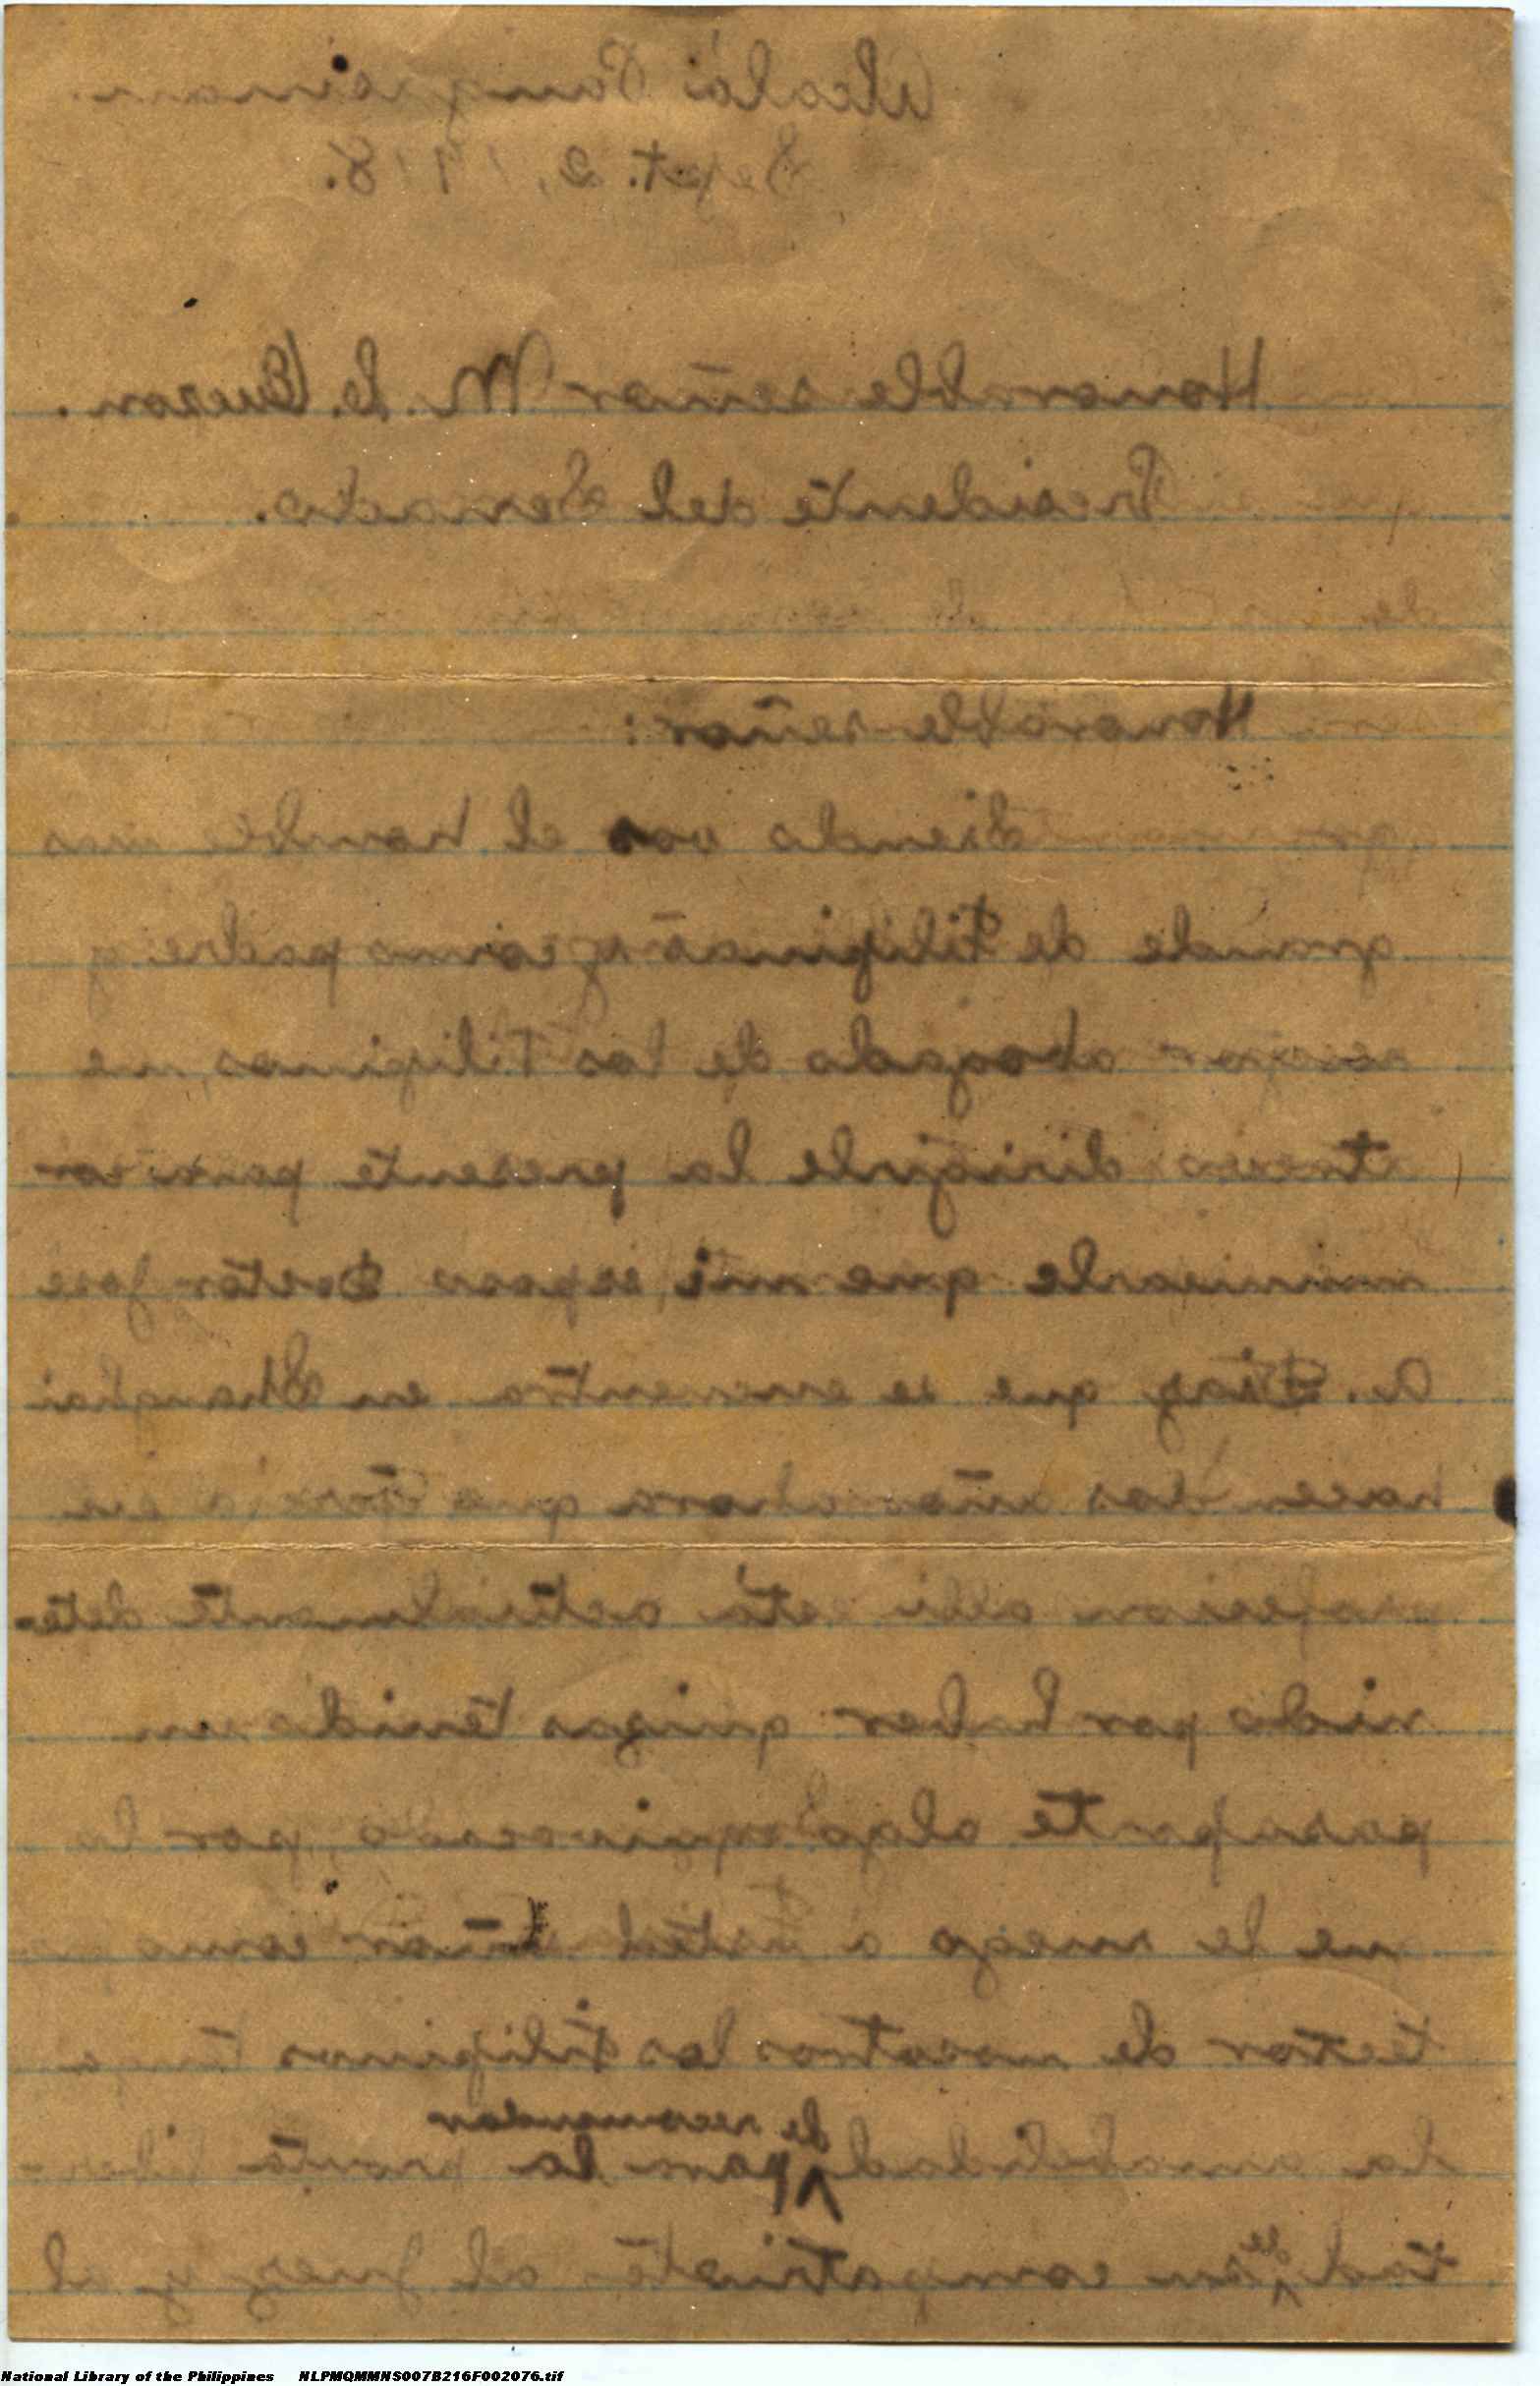 Alcalá Pangasinan.
Sept. 2, 1918.
Honorable señor M. L. Quezon.
Presidente del Senado.
Honorable señor:
Siendo vos el hombre mas
grande de Filipinas y como padre y
abogado de los Filipinos, me
dirigirle la presente para co-
municarle que mi esposo Doctor Jose
A. Diaz que se encuentra en Shanghai
hacen dos años ahora que
profesion alli está actualmente dete-
nido por haber quizas tenido un
pasaporte algo equivocado, por lo
que le ruego a usted señor como
tector de nosotros los Filipinos tenga
la amabelidad de recomendar para la pronta liber-
tad de su compatriota al Juez y al
National Library of the Philippines NLPMQMMNS007B216F002076.tif